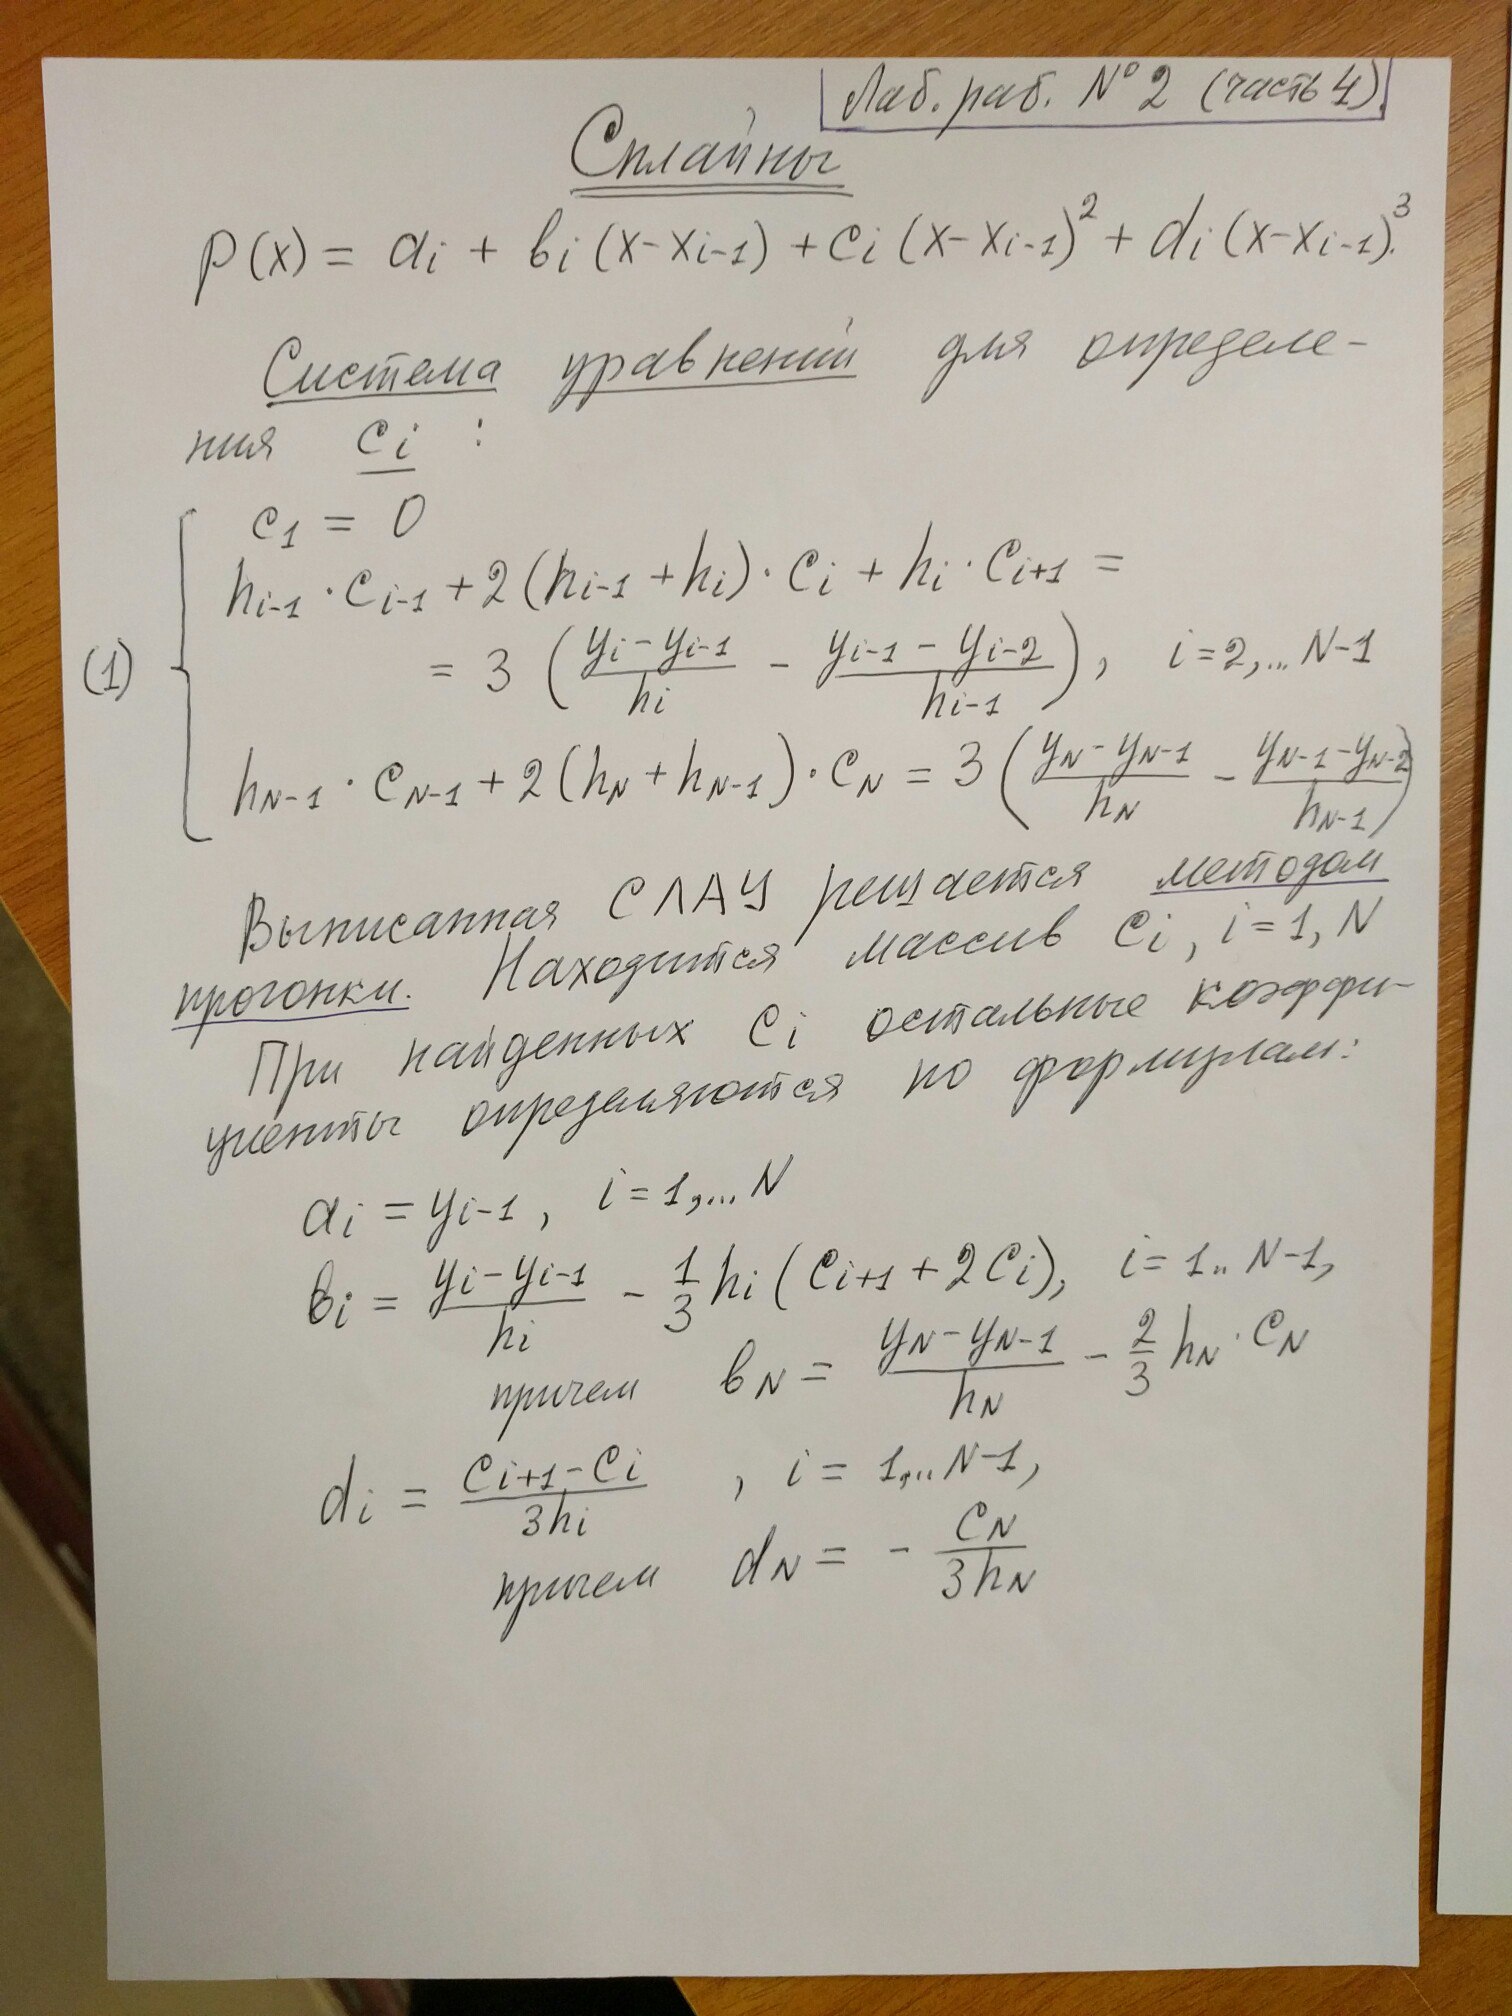 Лаб. раб. № 2 (часть 4).
Сплайны
P(x) = ai + bi (x-xi-1) + ci (x-xi-1)² + di (x-xi-1)³.
Система уравнений для определе-
ния ci :
c1 = 0
hi-1 · ci-1 + 2(hi-1 + hi) · ci + hi · ci+1 =
(1)
= 3 ( (yi - yi-1)/hi - (yi-1 - yi-2)/hi-1 ), i=2,... N-1
hN-1 · cN-1 + 2(hN + hN-1) · cN = 3 ( (yN - yN-1)/hN - (yN-1 - yN-2)/hN-1 )
Выписанная СЛАУ решается методом
прогонки. Находится массив ci, i=1, N
При найденных ci остальные коэффи-
циенты определяются по формулам:
ai = yi-1, i=1,... N
bi = (yi - yi-1)/hi - 1/3 hi (ci+1 + 2ci), i=1.. N-1,
причем bN = (yN - yN-1)/hN - 2/3 hN · cN
di = (ci+1 - ci)/3hi , i = 1,.. N-1,
причем dN = - cN/3hN